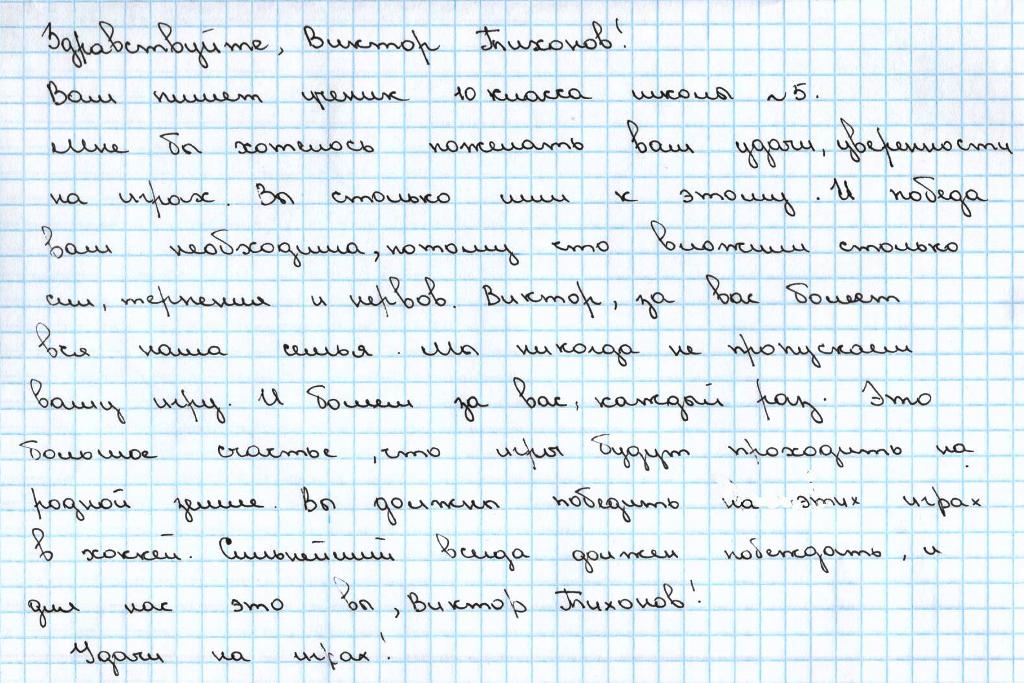 Здравствуйте, Виктор Тихонов!
Вам пишет ученик 10 класса школы №5.
Мне бы хотелось пожелать вам удачи, уверенности
на играх. Вы столько шли к этому. И победа
вам необходима, потому что вложили столько
сил, терпения и нервов. Виктор, за вас болеет
вся наша семья. Мы никогда не пропускаем
вашу игру. И болеем за вас, каждый раз. Это
большое счастье, что игры будут проходить на
родной земле. Вы должны победить на этих играх
в хоккей. Сильнейший всегда должен побеждать, и
для нас это вы, Виктор Тихонов!
Удачи на играх!